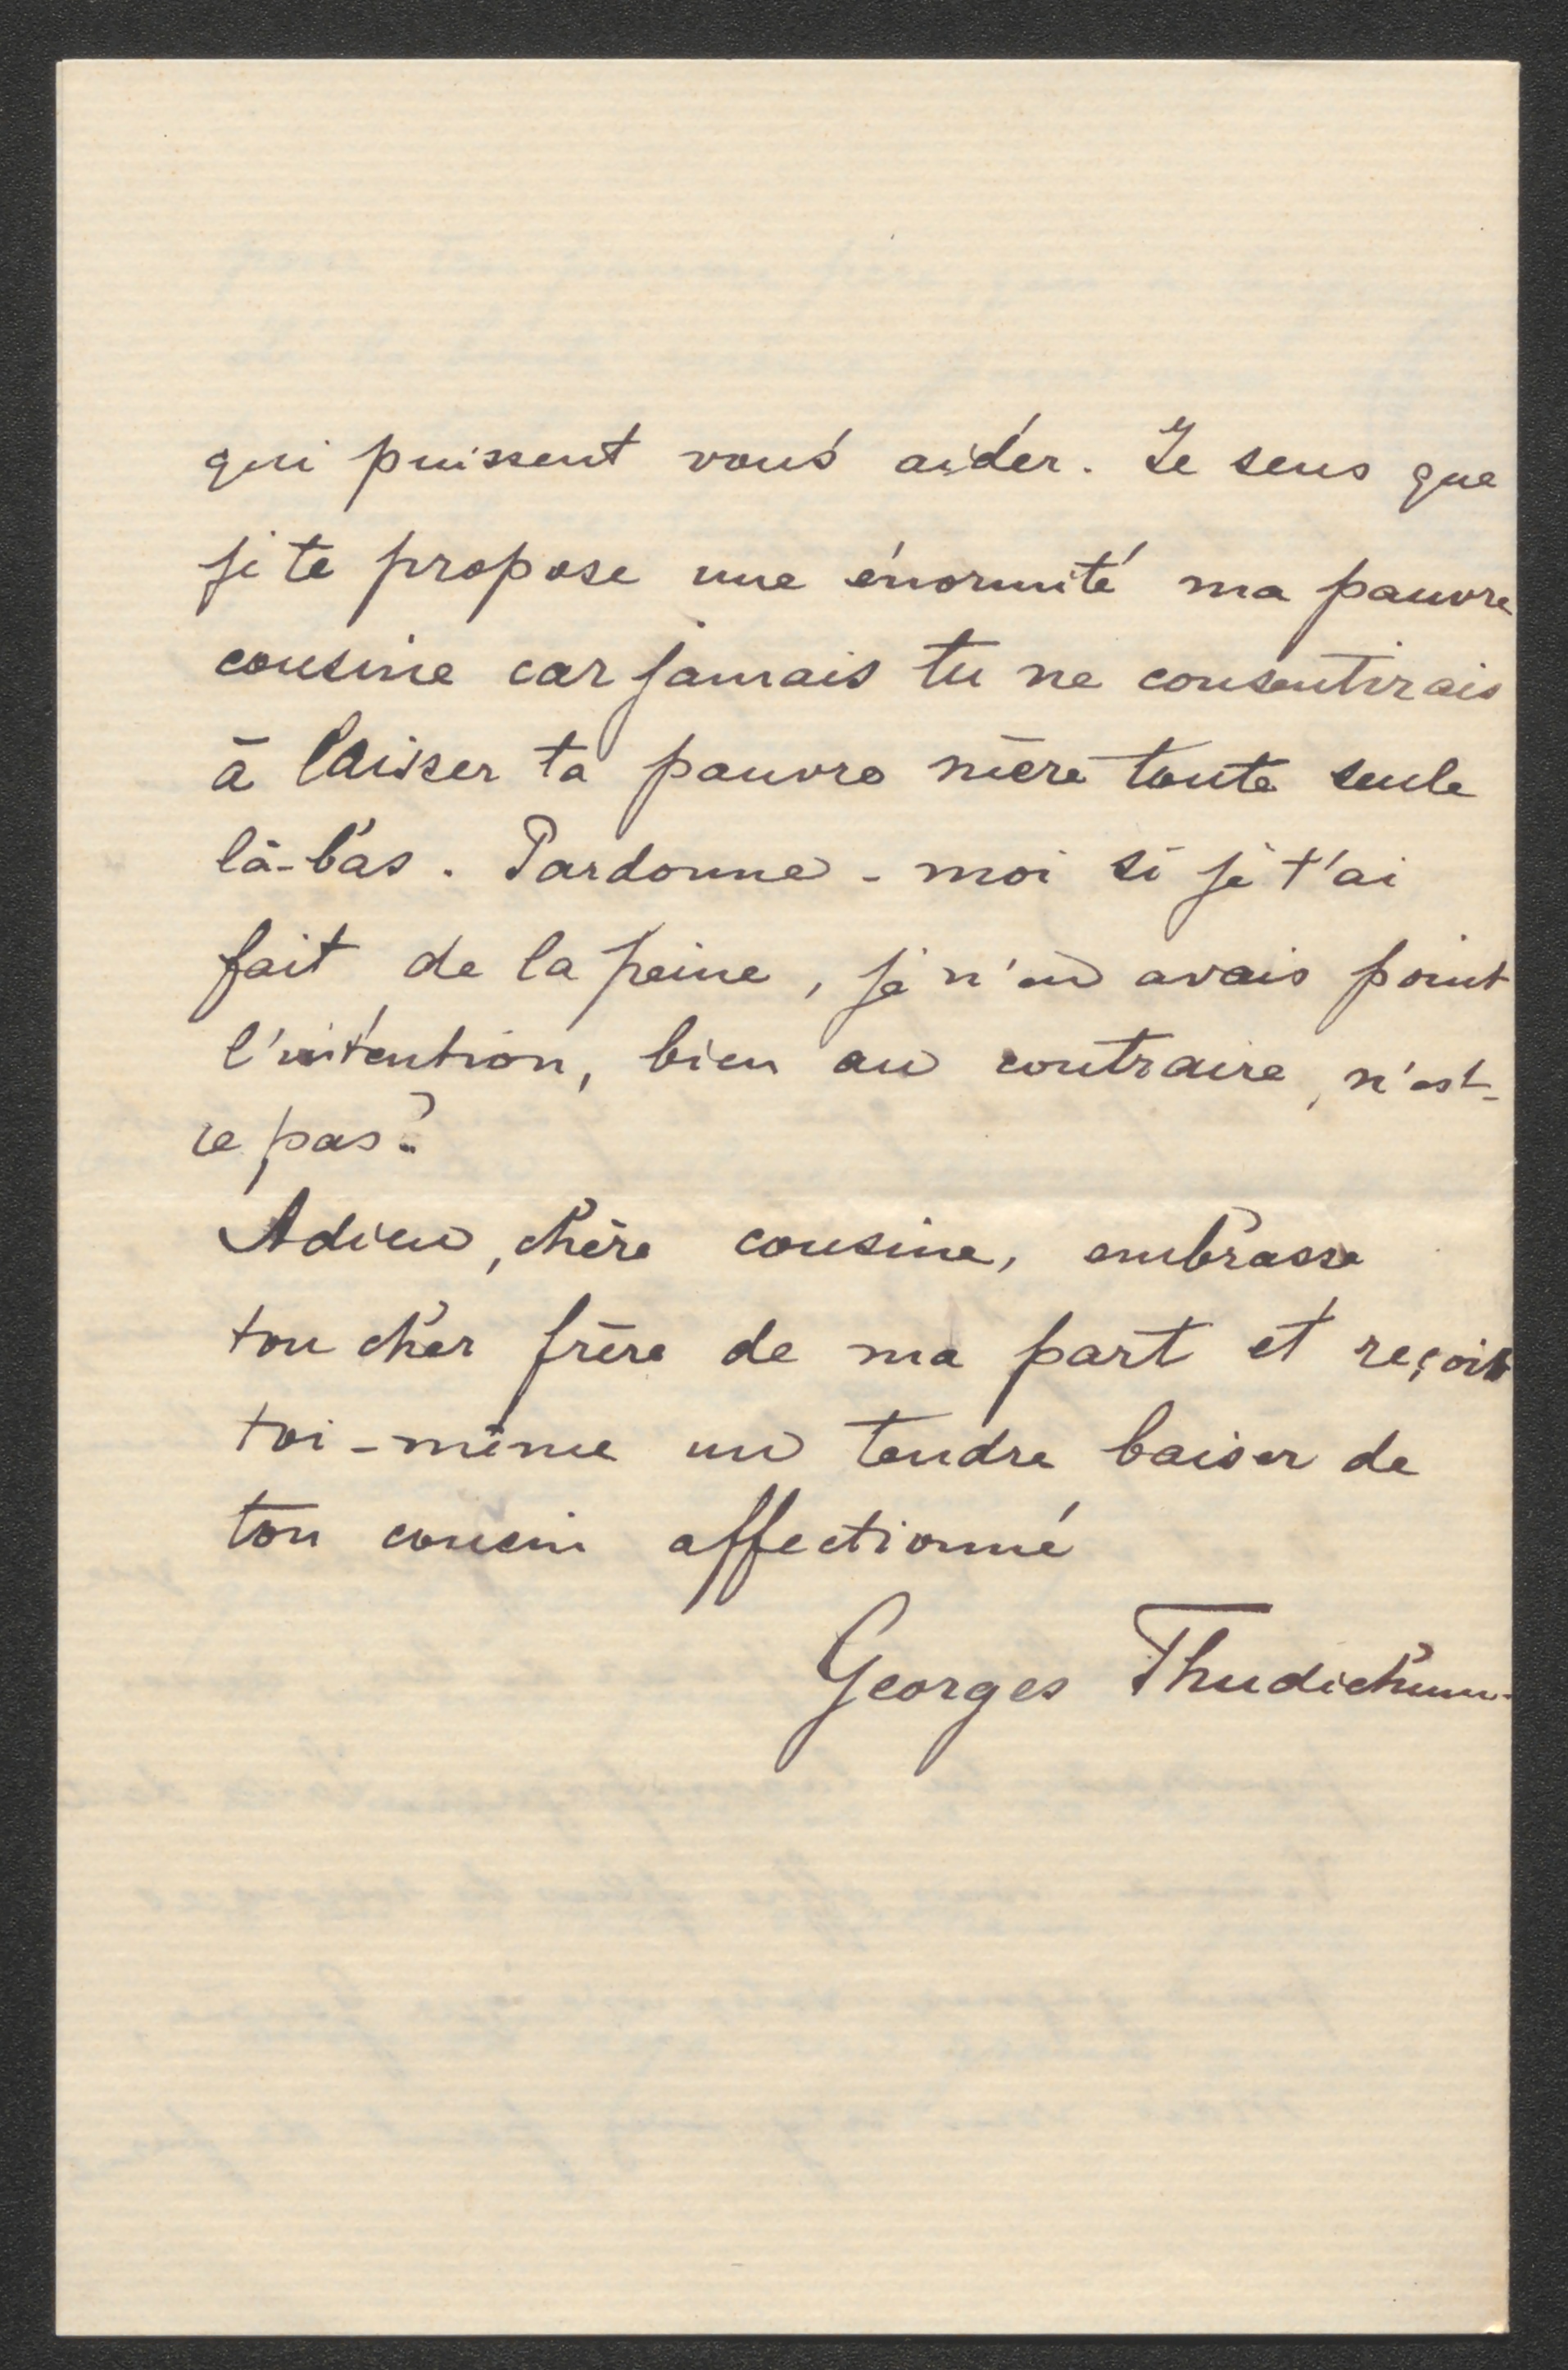 qui puissent vous aider. Je sens que
je te propose une énormité ma pauvre
cousine car jamais tu ne consentirais
à laisser ta pauvre mère toute seule
là-bas. Pardonne-moi si je t'ai
fait de la peine, je n'en avais point
l'intention, bien au contraire, n'est-
ce pas?
Adieu, chère cousine, embrasse
ton cher frère de ma part et reçois
toi-même un tendre baiser de
ton cousin affectionné
Georges Thudichum.